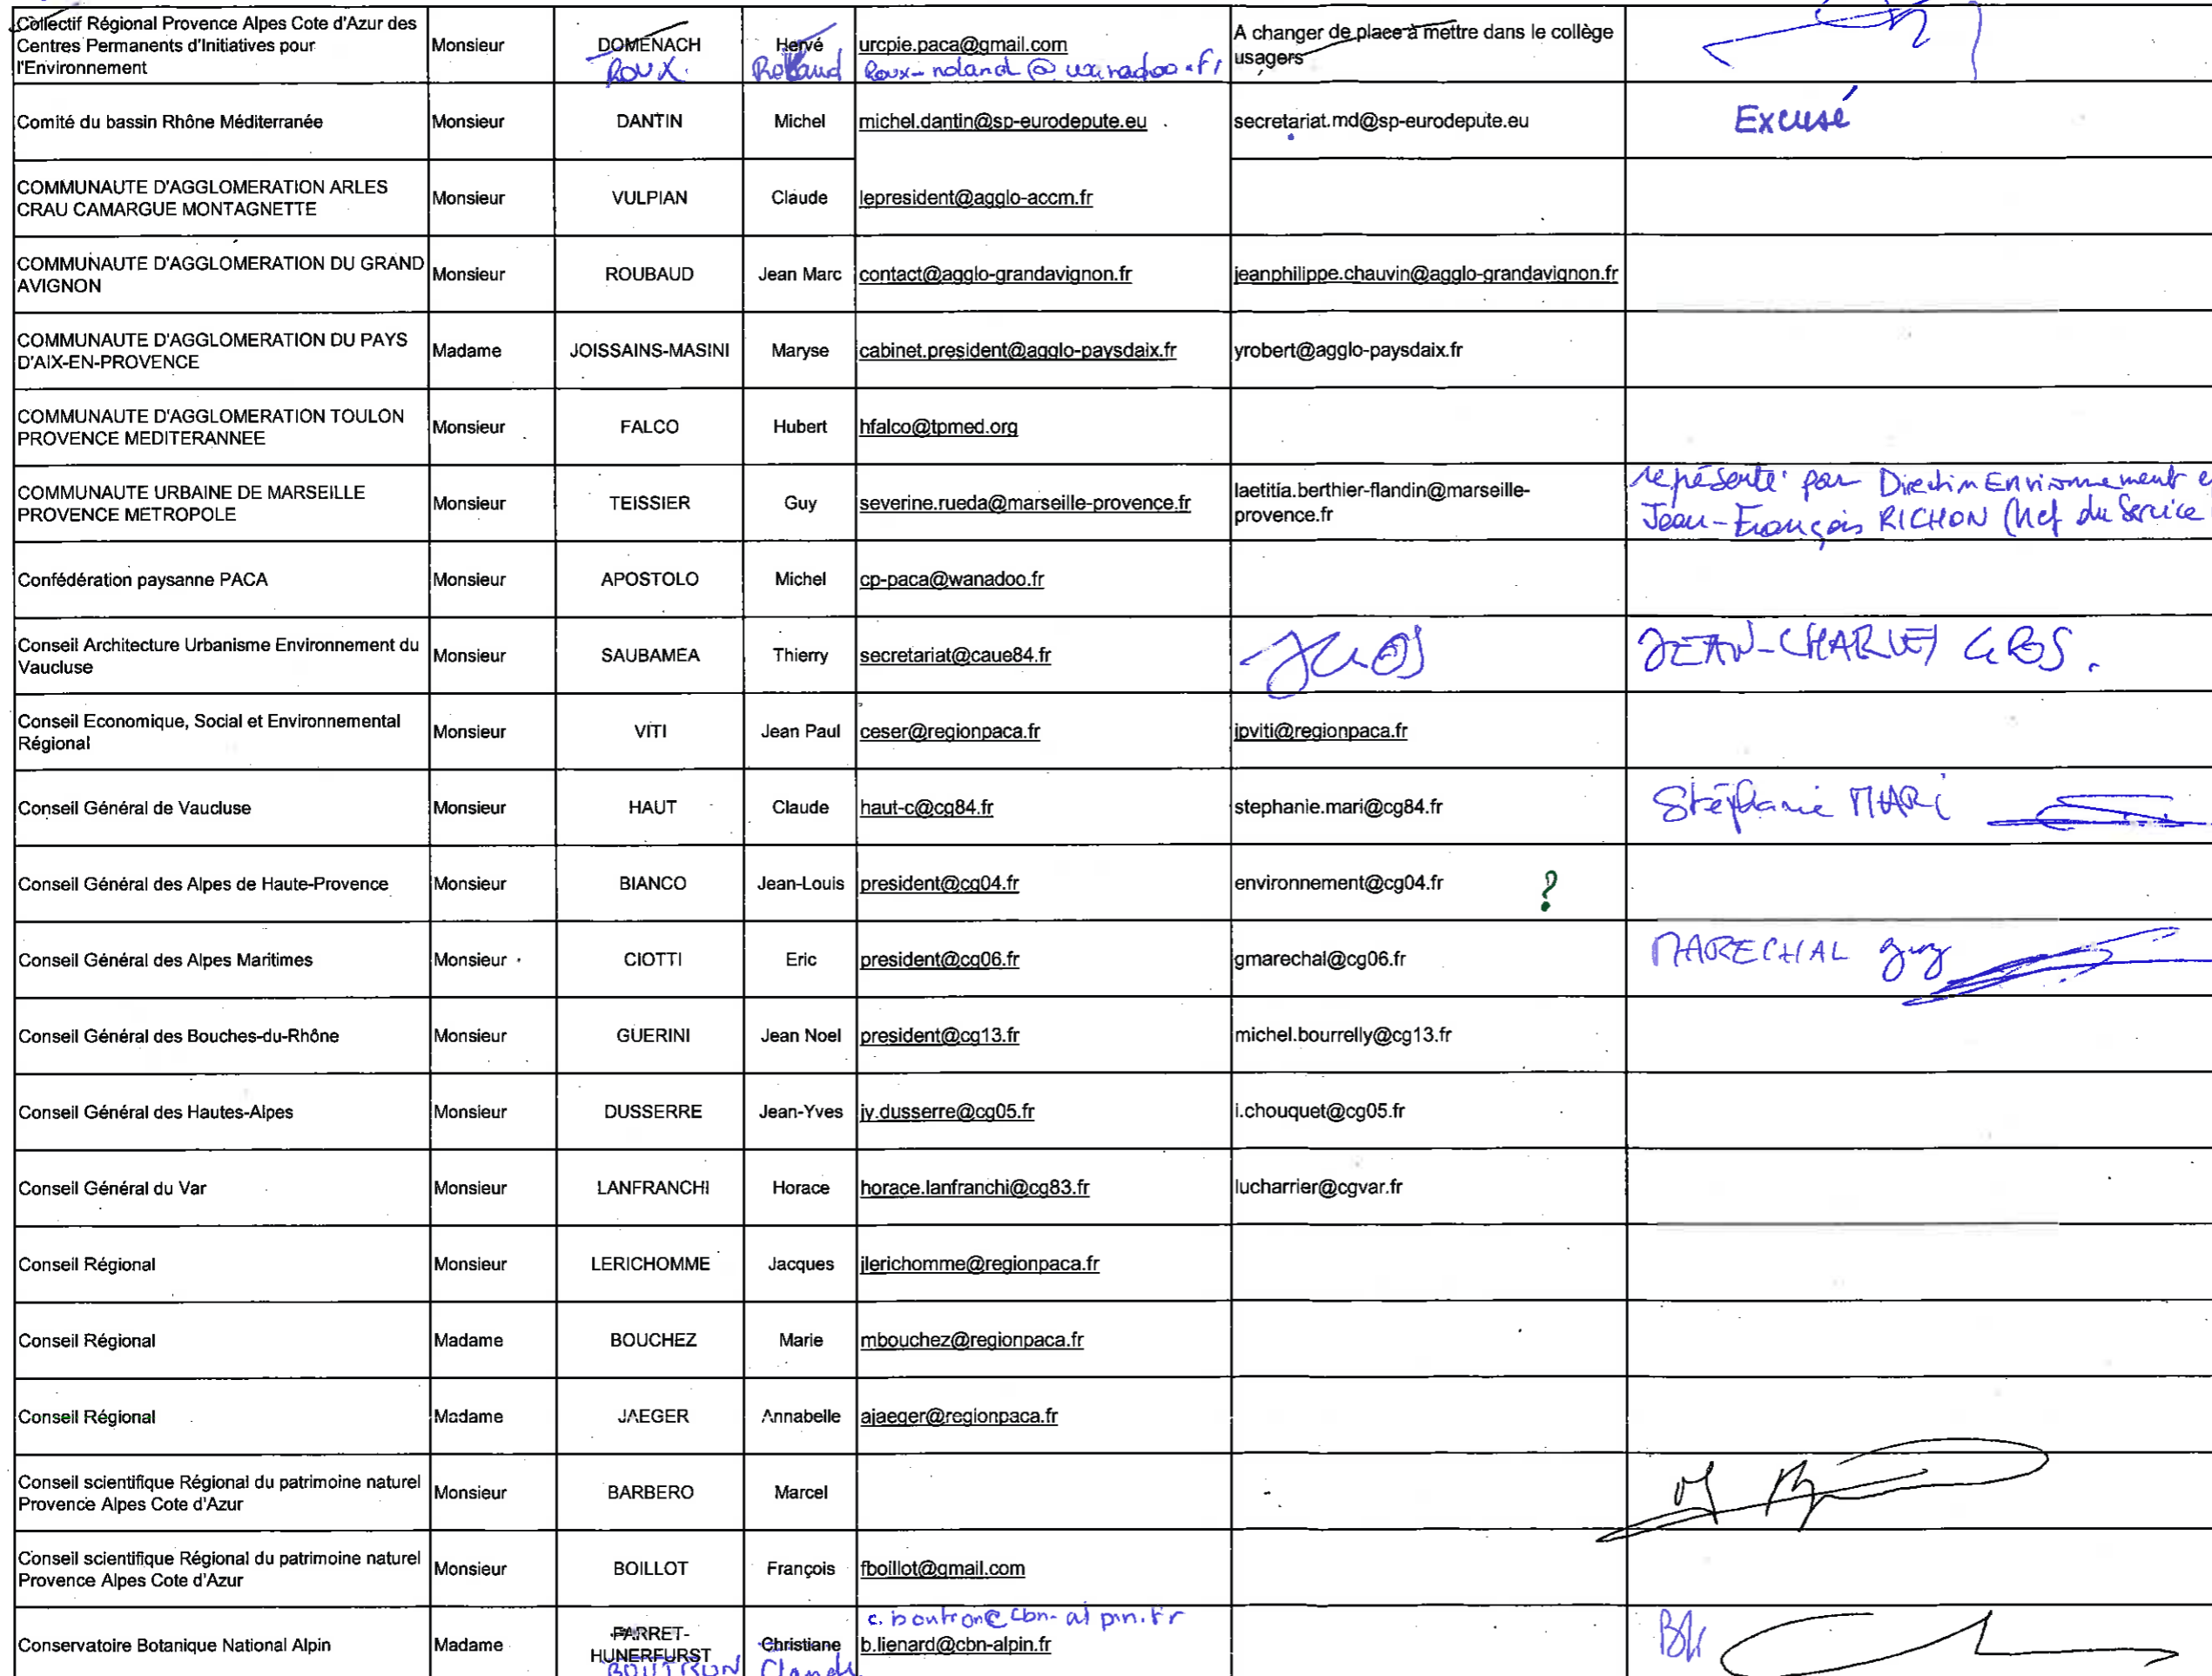 Collectif Régional Provence Alpes Cote d'Azur des
Centres Permanents d'Initiatives pour
l'Environnement
Monsieur
DOMENACH
ROUX
Hervé
Rolland
urcpie.paca@gmail.com
A changer de place à mettre dans le collège
usagers
Comité du bassin Rhône Méditerranée
Monsieur
DANTIN
Michel
michel.dantin@sp-eurodepute.eu
secretariat.md@sp-eurodepute.eu
Excusé
COMMUNAUTE D'AGGLOMERATION ARLES
CRAU CAMARGUE MONTAGNETTE
Monsieur
VULPIAN
Claude
lepresident@agglo-accm.fr
COMMUNAUTE D'AGGLOMERATION DU GRAND
AVIGNON
Monsieur
ROUBAUD
Jean Marc
contact@agglo-grandavignon.fr
jeanphilippe.chauvin@agglo-grandavignon.fr
COMMUNAUTE D'AGGLOMERATION DU PAYS
D'AIX-EN-PROVENCE
Madame
JOISSAINS-MASINI
Maryse
cabinet.president@agglo-paysdaix.fr
yrobert@agglo-paysdaix.fr
COMMUNAUTE D'AGGLOMERATION TOULON
PROVENCE MEDITERANNEE
Monsieur
FALCO
Hubert
hfalco@tpmed.org
COMMUNAUTE URBAINE DE MARSEILLE
PROVENCE METROPOLE
Monsieur
TEISSIER
Guy
severine.rueda@marseille-provence.fr
laetitia.berthier-flandin@marseille-
provence.fr
représenté par Direction Environnement e
Jean-François RICHON (chef du Service
Confédération paysanne PACA
Monsieur
APOSTOLO
Michel
cp-paca@wanadoo.fr
Conseil Architecture Urbanisme Environnement du
Vaucluse
Monsieur
SAUBAMEA
Thierry
secretariat@caue84.fr
JEAN-CHARLES GROS.
Conseil Economique, Social et Environnemental
Régional
Monsieur
VITI
Jean Paul
ceser@regionpaca.fr
jpviti@regionpaca.fr
Conseil Général de Vaucluse
Monsieur
HAUT
Claude
haut-c@cg84.fr
stephanie.mari@cg84.fr
Stéphanie MARI
Conseil Général des Alpes de Haute-Provence
Monsieur
BIANCO
Jean-Louis
president@cg04.fr
environnement@cg04.fr
?
Conseil Général des Alpes Maritimes
Monsieur
CIOTTI
Eric
president@cg06.fr
gmarechal@cg06.fr
MARECHAL guy
Conseil Général des Bouches-du-Rhône
Monsieur
GUERINI
Jean Noel
president@cg13.fr
michel.bourrelly@cg13.fr
Conseil Général des Hautes-Alpes
Monsieur
DUSSERRE
Jean-Yves
jy.dusserre@cg05.fr
i.chouquet@cg05.fr
Conseil Général du Var
Monsieur
LANFRANCHI
Horace
horace.lanfranchi@cg83.fr
lucharrier@cgvar.fr
Conseil Régional
Monsieur
LERICHOMME
Jacques
jlerichomme@regionpaca.fr
Conseil Régional
Madame
BOUCHEZ
Marie
mbouchez@regionpaca.fr
Conseil Régional
Madame
JAEGER
Annabelle
ajaeger@regionpaca.fr
Conseil scientifique Régional du patrimoine naturel
Provence Alpes Cote d'Azur
Monsieur
BARBERO
Marcel
Conseil scientifique Régional du patrimoine naturel
Provence Alpes Cote d'Azur
Monsieur
BOILLOT
François
fboillot@gmail.com
Conservatoire Botanique National Alpin
Madame
PARRET-
HUNERFURST
BOUTRON
Christiane
c.boutron@cbn-alpin.fr
b.lienard@cbn-alpin.fr